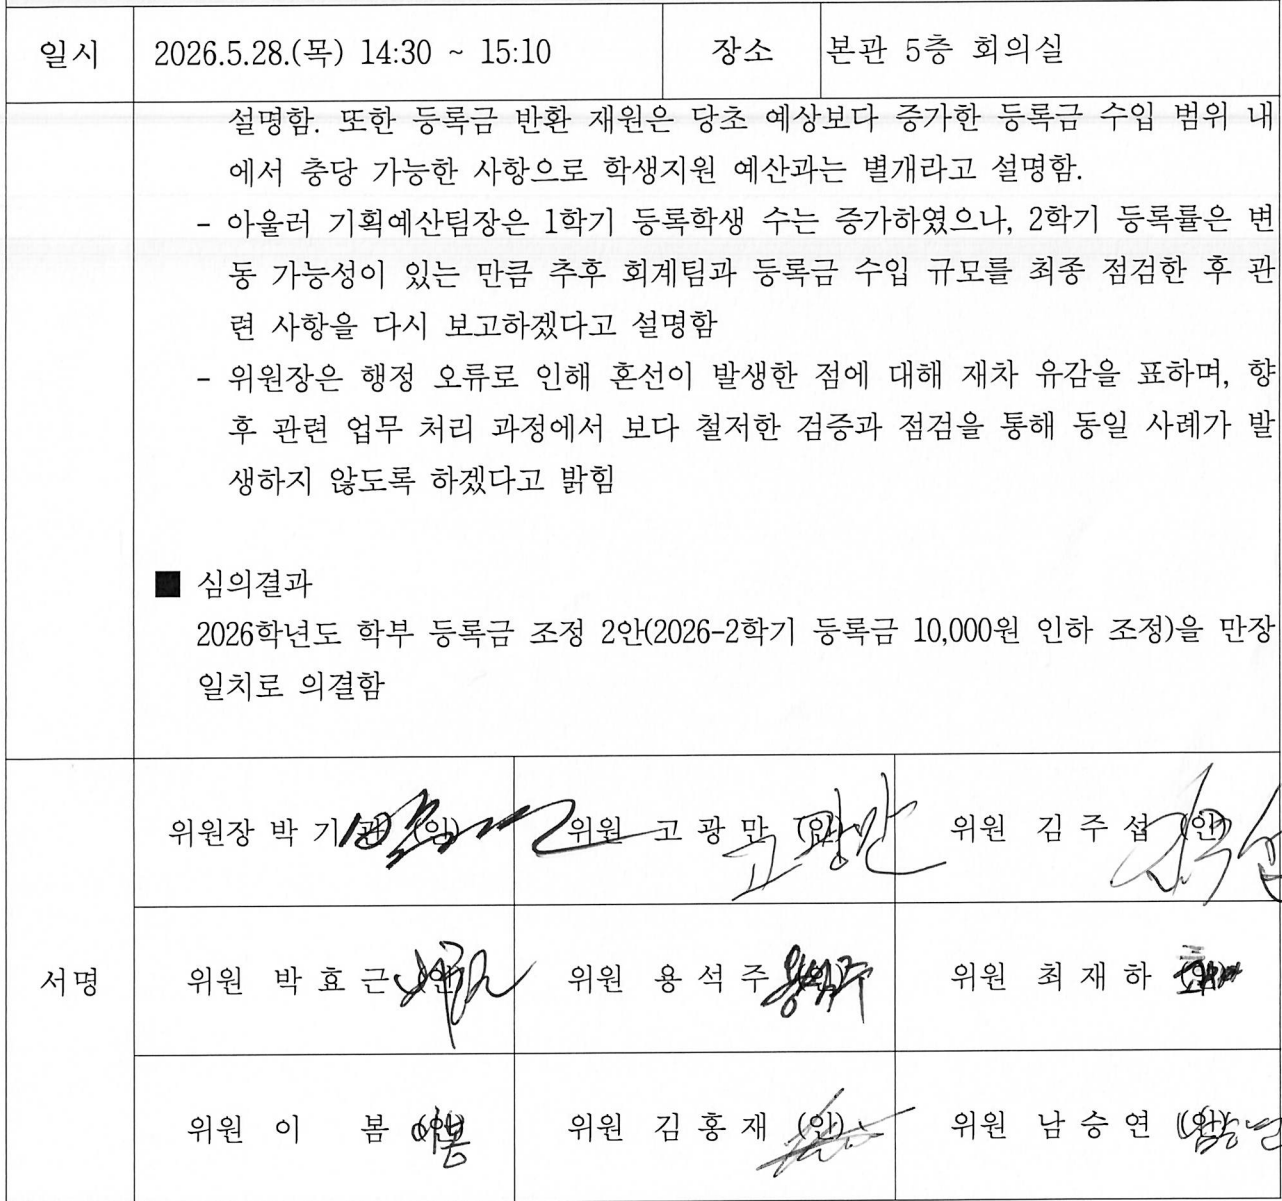 일시 2026.5.28.(목) 14:30 ~ 15:10 장소 본관 5층 회의실
설명함. 또한 등록금 반환 재원은 당초 예상보다 증가한 등록금 수입 범위 내
에서 충당 가능한 사항으로 학생지원 예산과는 별개라고 설명함.
- 아울러 기획예산팀장은 1학기 등록학생 수는 증가하였으나, 2학기 등록률은 변
동 가능성이 있는 만큼 추후 회계팀과 등록금 수입 규모를 최종 점검한 후 관
련 사항을 다시 보고하겠다고 설명함
- 위원장은 행정 오류로 인해 혼선이 발생한 점에 대해 재차 유감을 표하며, 향
후 관련 업무 처리 과정에서 보다 철저한 검증과 점검을 통해 동일 사례가 발
생하지 않도록 하겠다고 밝힘
■ 심의결과
2026학년도 학부 등록금 조정 2안(2026-2학기 등록금 10,000원 인하 조정)을 만장
일치로 의결함
위원장 박 기 (인) 위원 고 광 만 (인) 고광만 위원 김 주 섭 (인)
서명 위원 박 효 근 (인) 위원 용 석 주 (인) 위원 최 재 하 (인)
위원 이 봄 (인) 이봄 위원 김 홍 재 (인) 위원 남 승 연 (인)